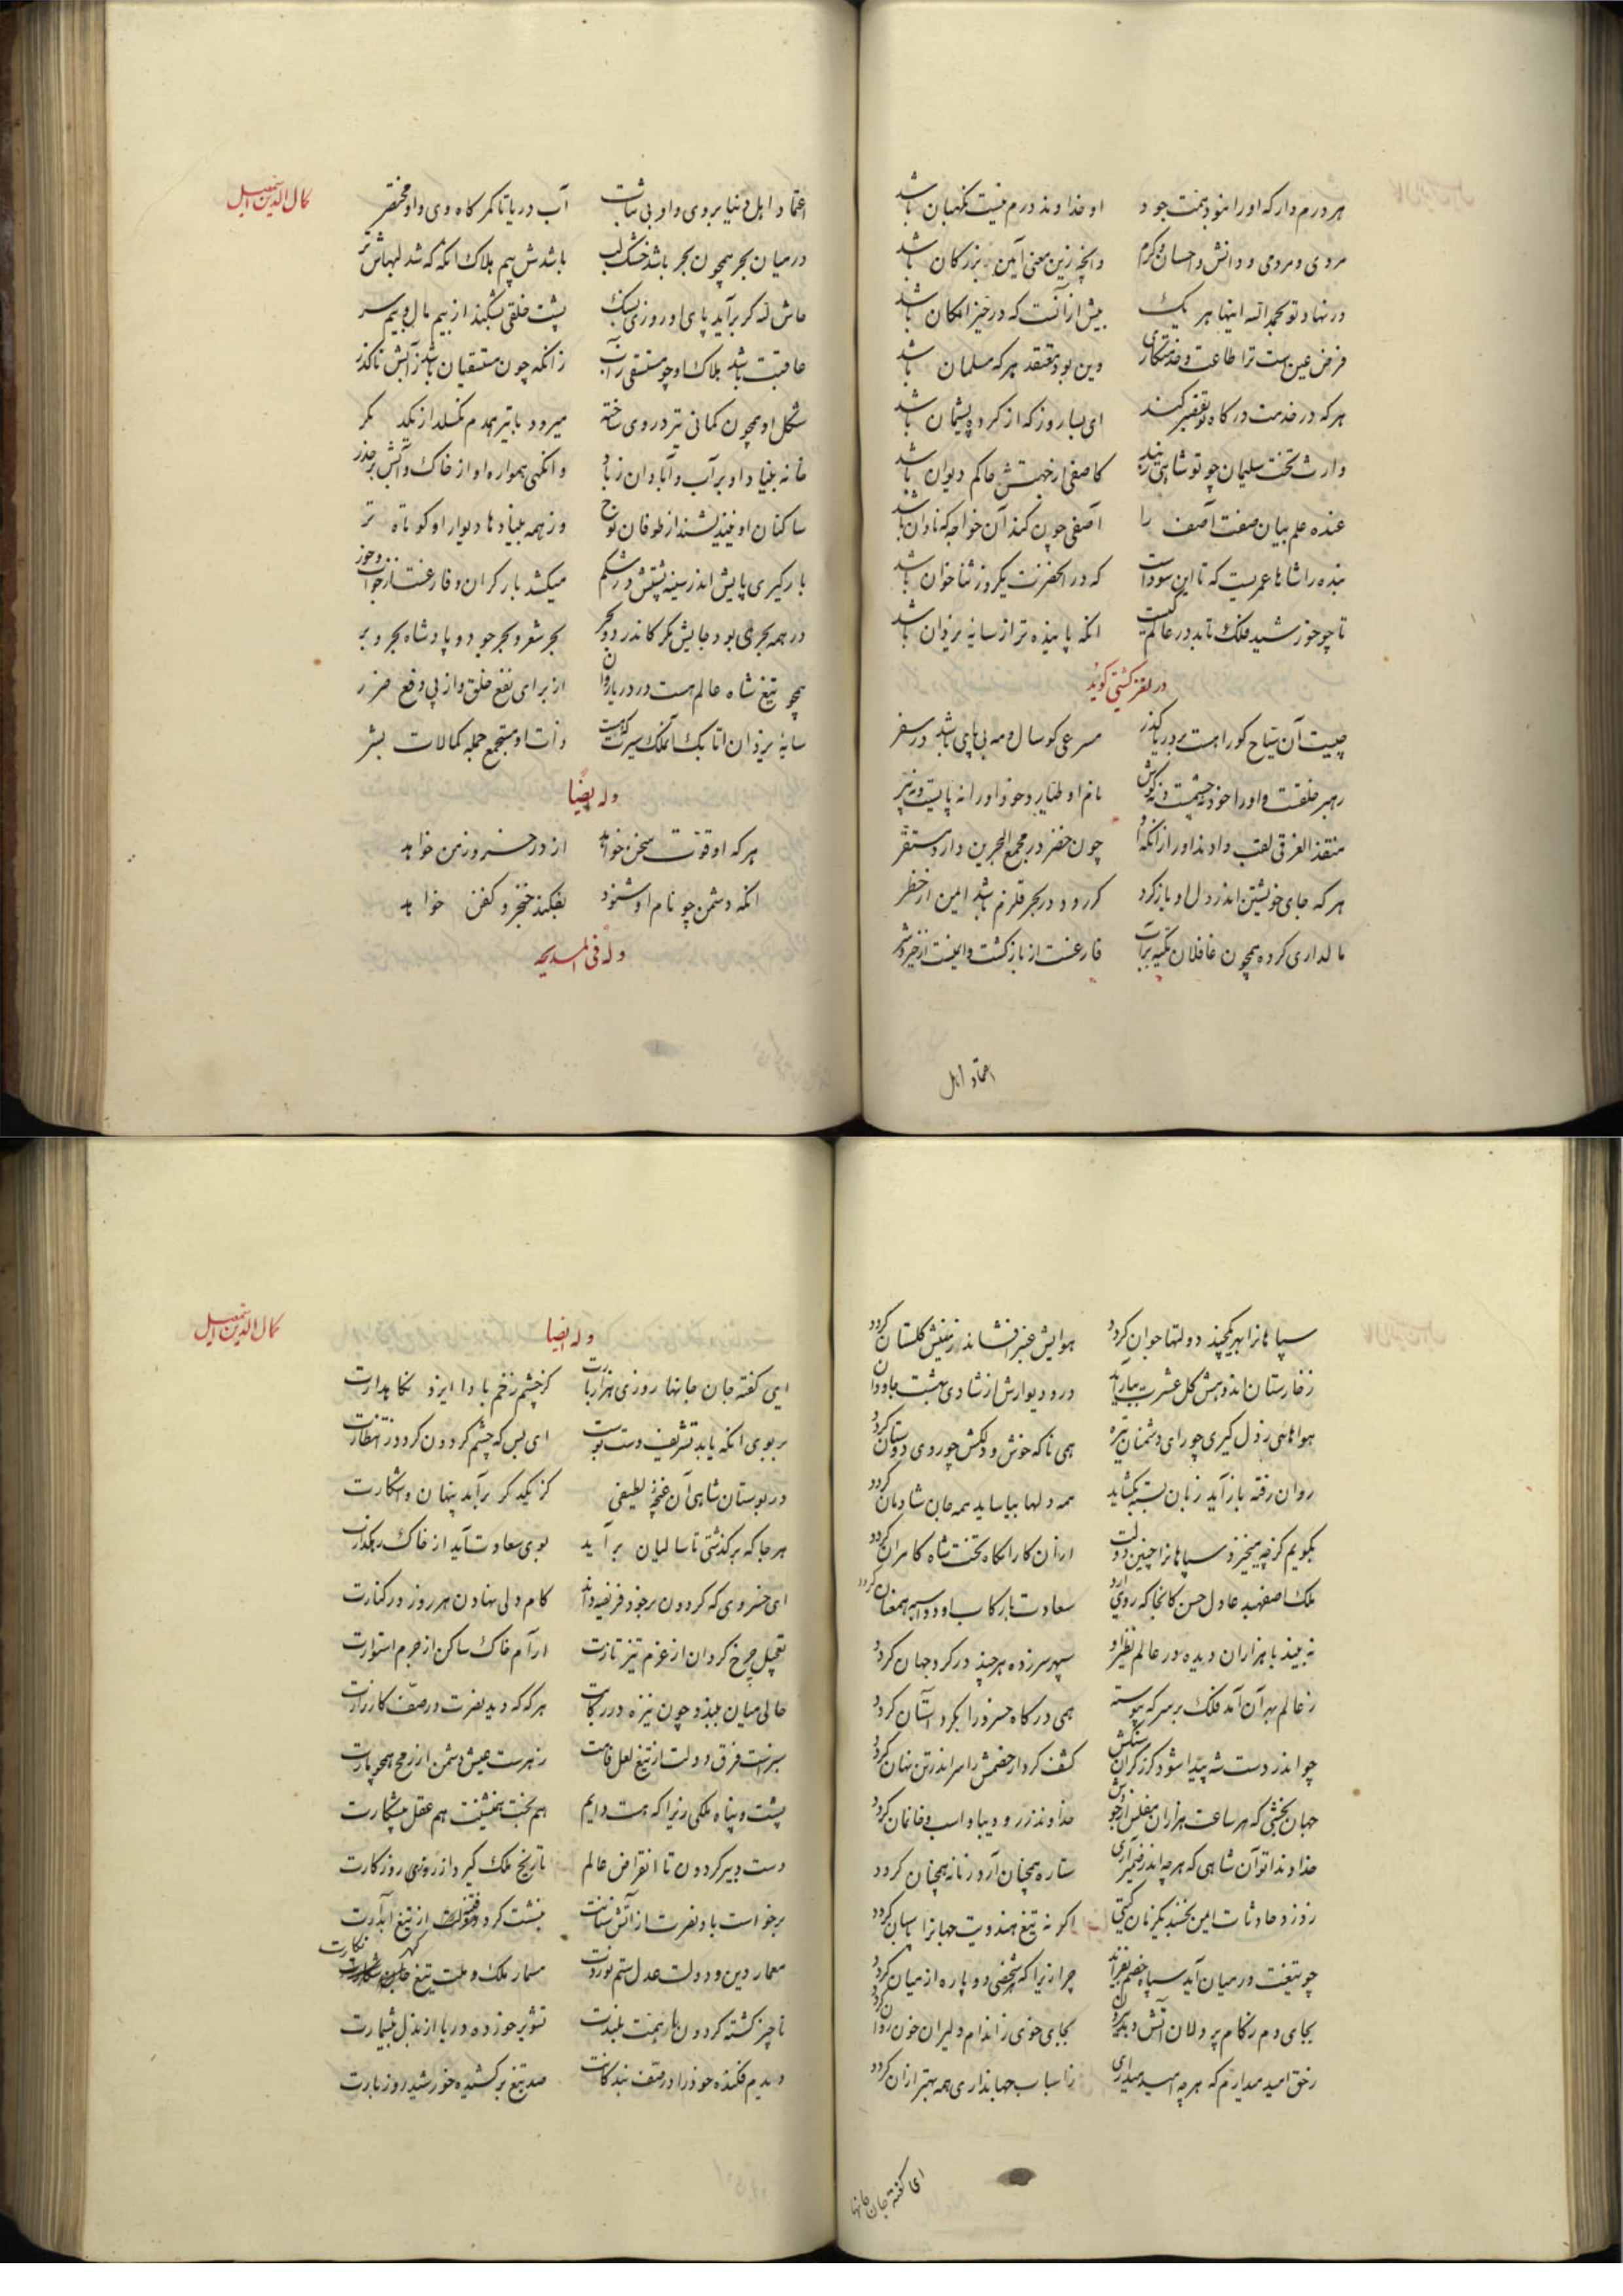 هر درم دار که او را نبود همت جود او خداوند درم نیست نگهبان باشد
مردی و مردمی و دانش و احسان و کرم وانچه زین معنی آیین بزرگان باشد
در نهاد تو بحمدالله اینها هر یک بیش از آنست که در حیز امکان باشد
فرض عین است ترا طاعت و خدمتکاری وین بود معتقد هر که مسلمان باشد
هر که در خدمت درگاه تو تقصیر کند ای بسا روز که از کرده پشیمان باشد
وارث تخت سلیمان چو تو شاهی کاصفی حاکم دیوان باشد
عنده علم بیان صفت آصف را آصفی چون کند آن خواجه که نادان باشد
بنده را شاها عمریست که تا این سوداست که در آنحضرت یکروز ثناخوان باشد
تا چو خورشید فلک تابد در عالم کیست انکه پاینده تر از سایه یزدان باشد
در لغز کشتی گوید
چیست آن سیاح کورا هست بر دریا گذر مسرعی کو سال و مه بی پای باشد در سفر
رهبر خلقست و او را خود نه چشمست و نه گوش نام او طیار و خود او را نه پایست و نه پر
منقذ الغرقی لقب دادند او را زانکه او چون خضر در مجمع البحرین دارد مستقر
هر که جای خویشتن اندر دل او باز کرد گر رود در بحر قلزم باشد ایمن از خطر
مالداری کرده همچون غافلان تکیه بر آب فارغست از بازگشت و ایمنست از خیر و شر
اعتماد اهل
کمال الدین اسمعیل
اعتماد اهل دنیا بر وی و او بی ثبات آب دریا تا کمرگاه وی و او مختصر
در میان بحر همچون بحر باشد خشک لب باشدش بیم هلاک آنگه که شد لبهاش تر
حاش لله گر برآید پای او روزی بسنگ پشت خلقی بشکند از بیم مال و بیم سر
عاقبت باشد هلاک او چو مستسقی ز آب زانکه چون مستسقیان باشد ز آبش ناگذر
شکل او همچون کمانی تیر در وی ساخته میرود با تیر همدم نگسلد از یکدگر
خانه بنیاد او بر آب و آبادان ز باد وانگهی همواره او از خاک و آتش بر حذر
ساکنان او نیندیشند از طوفان نوح وز همه بنیادها دیوار او کوتاه تر
بارگیری پایش اندر سینه پشتش در شکم میکشد بار گران و فارغست از خواب و خور
در همه بحری بود جایش مگر کاندر دو بحر بحر شعر و بحر جود و پادشاه بحر و بر
همچو تیغ شاه عالم هست در دریا روان از برای نفع خلق و از پی دفع ضرر
سایه یزدان اتابک آنکه ذات او مستجمع جمله کمالات بشر
وله ایضا
هر که او قوت سخن خواهد از در خسرو زمن خواهد
انکه دشمن چو نام او شنود بفکند خنجر و کفن خواهد
وله فی المدیحه
سپاهانرا بهر یکچند دولتها جوان گردد هوایش عنبر افشاند زمینش گلستان گردد
ز خارستان اندوهش گل عشرت ببار آید در و دیوارش از شادی بهشت جاودان گردد
هوا هائی ز دل گیری چو رای دشمنان تیره همی ناگه خوش و دلکش چو روی دوستان گردد
روان رفته باز آید زبان بسته بگشاید همه دلها بیاساید همه جان شادمان گردد
بگویم کز چه میخیزد سپاهانرا چنین دولت ازان کارامگاه تخت شاه کامران گردد
ملک اصفهبد عادل حسن کانجا که روی آرد سعادت با رکاب او دو اسبه همعنان گردد
نه بیند با هزاران دیده در عالم نظیر او سپهر سرزده هر چند در گرد جهان گردد
ز عالم بهر آن آمد فلک بر سر که پیوسته همی درگاه خسرو را بگرد آستان گردد
چو اندر دست شه پیدا شود گرز گران سنگش کشف کردار خصمش را سر اندر تن نهان گردد
جهان بخشی که هر ساعت هزاران مفلس از جودش خداوند زر و دیبا و اسب و خانمان گردد
خداوندا تو آن شاهی که هر چه اندر ضمیر آری ستاره همچنان آرد زمانه همچنان گردد
ز دزد حادثات ایمن نخسبد یکزمان گیتی اگر نه تیغ هندویت جهانرا پاسبان گردد
چو تیغت در میان آید سپاه خصم بفزاید چرا زیرا که هر شخصی دو پاره از میان گردد
بجای دم ز کام پر دلان آتش پدید آرد بجای خوی ز اندام دلیران خون روان گردد
ز حق امید میدارم که هر چه امید میداری ز اسباب جهانداری همه بهتر ازان گردد
ای گفته جان جانها
کمال الدین اسمعیل
وله ایضا
ایی گفته جان جانها روزی هزار بارت کز چشم زخم بادا ایزد نگاهدارت
بر بوی انکه یابد تشریف دست بوست ای بس که چشم گردون کرد در انتظارت
در بوستان شاهی آن غنچه لطیفی کز یکدگر برآید پنهان و آشکارت
هر جا که برگذشتی تا سالیان برآید بوی سعادت آید از خاک رهگذارت
ای خسروی که گردون بر خود فریضه داند کام دلی نهادن هر روز در کنارت
تعجیل چرخ گردان از عزم تیز تازت آرام خاک ساکن از حزم استوارت
حالی میان ببندد چون نیزه در رکابت هر که که دید نصرت در صف کارزارت
سبزست فرق دولت از تیغ لعل فامت زهرست عیش دشمن از رمح همچو مارت
پشت و پناه ملکی زیرا که هست دایم هم بخت همنشینت هم عقل پیشکارت
دست دبیر گردون تا انقراض عالم تاریخ ملک گیرد از روزی روزگارت
برخواست باد نصرت از آتش سنانت بنشست گرد فتنه از تیغ آبدارت
معمار دین و دولت عدل ستم نوردت مسمار ملک و ملت تیغ گهر نگارت
ناچیز گشته گردون با همت بلندت تشویر خورده دریا از بذل بیشمارت
دیدیم فکنده خود را در صف بندگانت صد تیغ برکشیده خورشید روز بارت